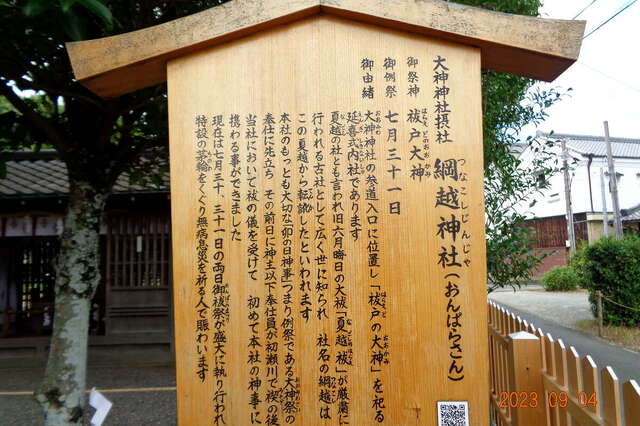 大神神社摂社　綱越神社(おんぱらさん)
つなこしじんじゃ
御祭神　祓戸大神
はらえどのおおかみ
御例祭　七月三十一日
御由緒
大神神社の参道入口に位置し「祓戸の大神」を祀る
延喜式内社であります
夏越の社とも言われ旧六月晦日の大祓「夏越祓」が厳粛に
行われる古社として広く世に知られ　社名の綱越は
この夏越から転訛したといわれます
本社のもっとも大切な「卯の日神事」つまり例祭である大神祭の
奉仕に先立ち　その前日に神主以下奉仕員が初瀬川で禊の後
当社において祓の儀を受けて　初めて本社の神事に
携わる事ができました
現在は七月三十、三十一日の両日御祓祭が盛大に執り行われ
特設の茅輪をくぐり無病息災を祈る人で賑わいます
2023 09 04